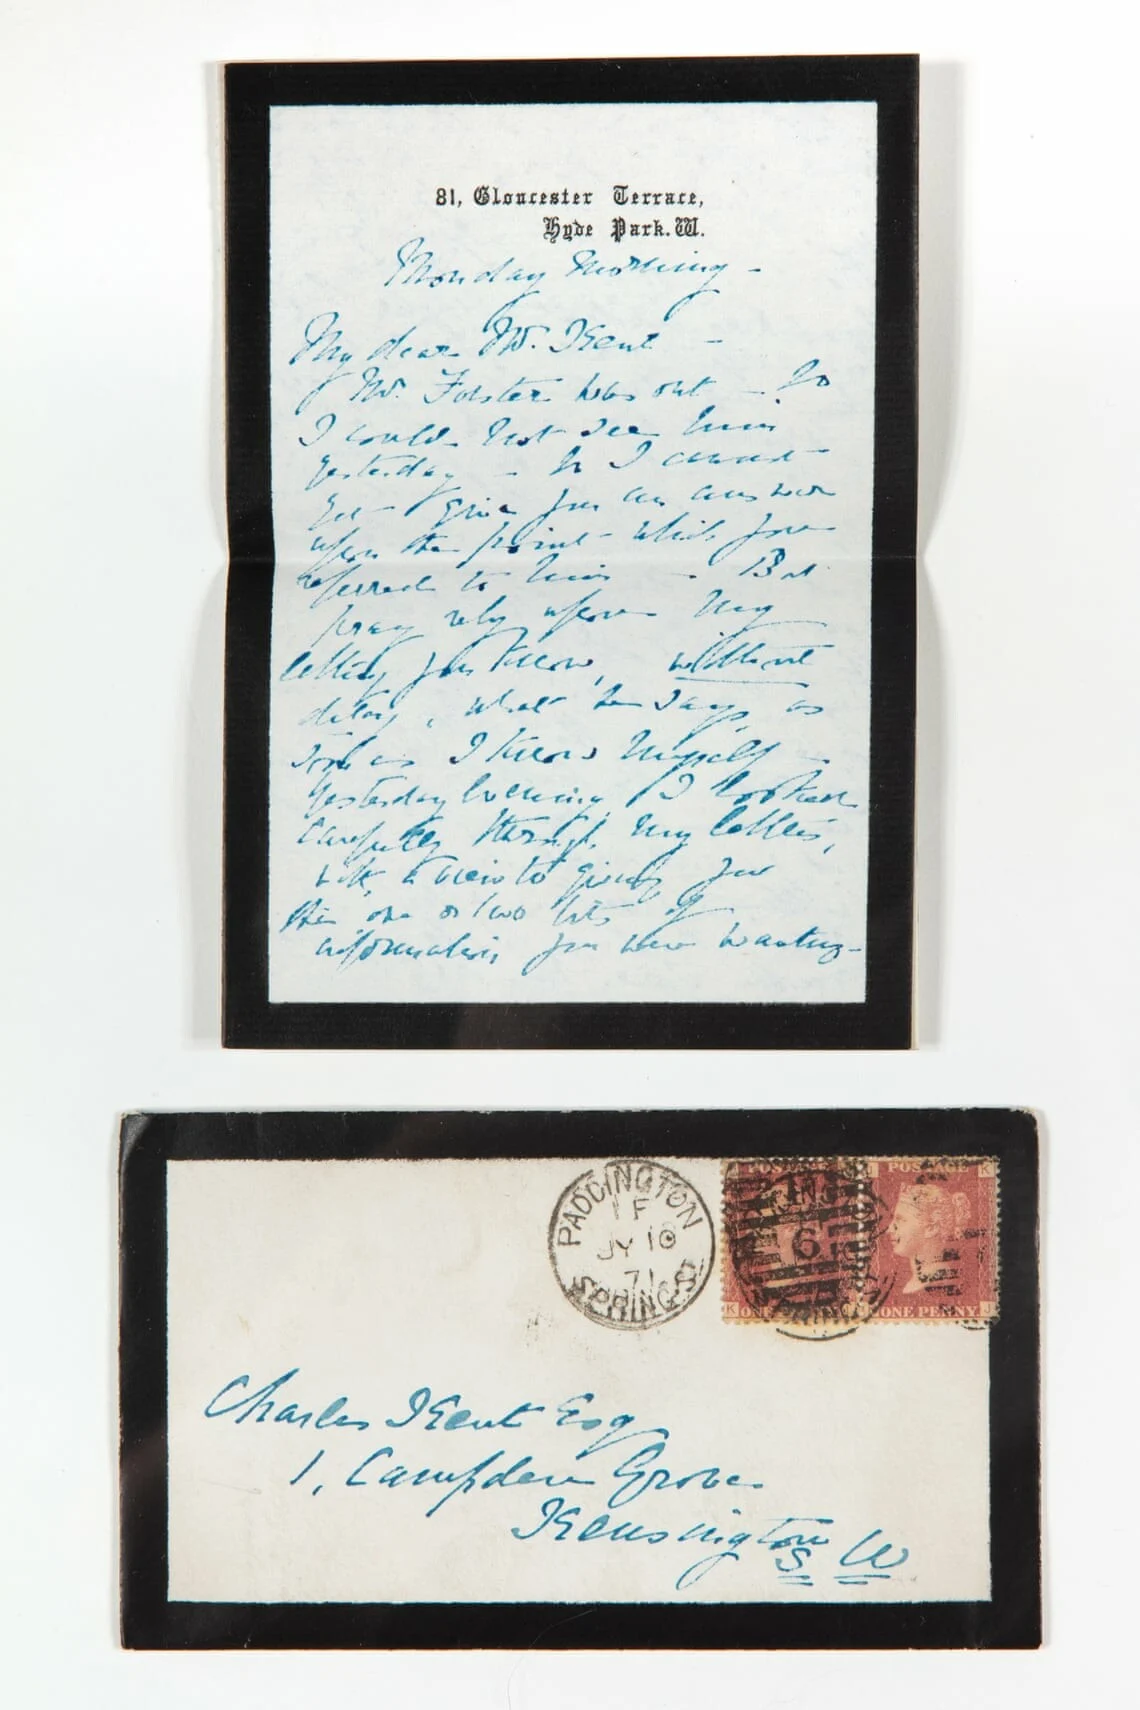 81, Gloucester Terrace,
Hyde Park. W.
Monday Morning -
My dear Mr. Kent -
Mr. Forster was out - So
I could not see him
yesterday - So I cannot
yet give you an answer
upon the point which you
referred to him - But
pray rely upon my
letting you know, without
delay, what he says, as
soon as I know myself -
Yesterday Evening I looked
carefully through my letters,
with a view to giving you
the one or two bits of
information you were wanting -
PADDINGTON
1 F
JY 10
71
SPRING
POSTAGE
J
POSTAGE
K
6
K
ONE PENNY
J
ONE PENNY
J
Charles Kent Esq
1, Campden Grove
Kensington
S W